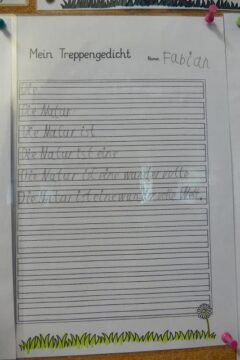 Mein Treppengedicht Name: Fabian
Die
Die Natur
Die Natur ist
Die Natur ist eine
Die Natur ist eine wundervolle
Die Natur ist eine wundervolle Welt.